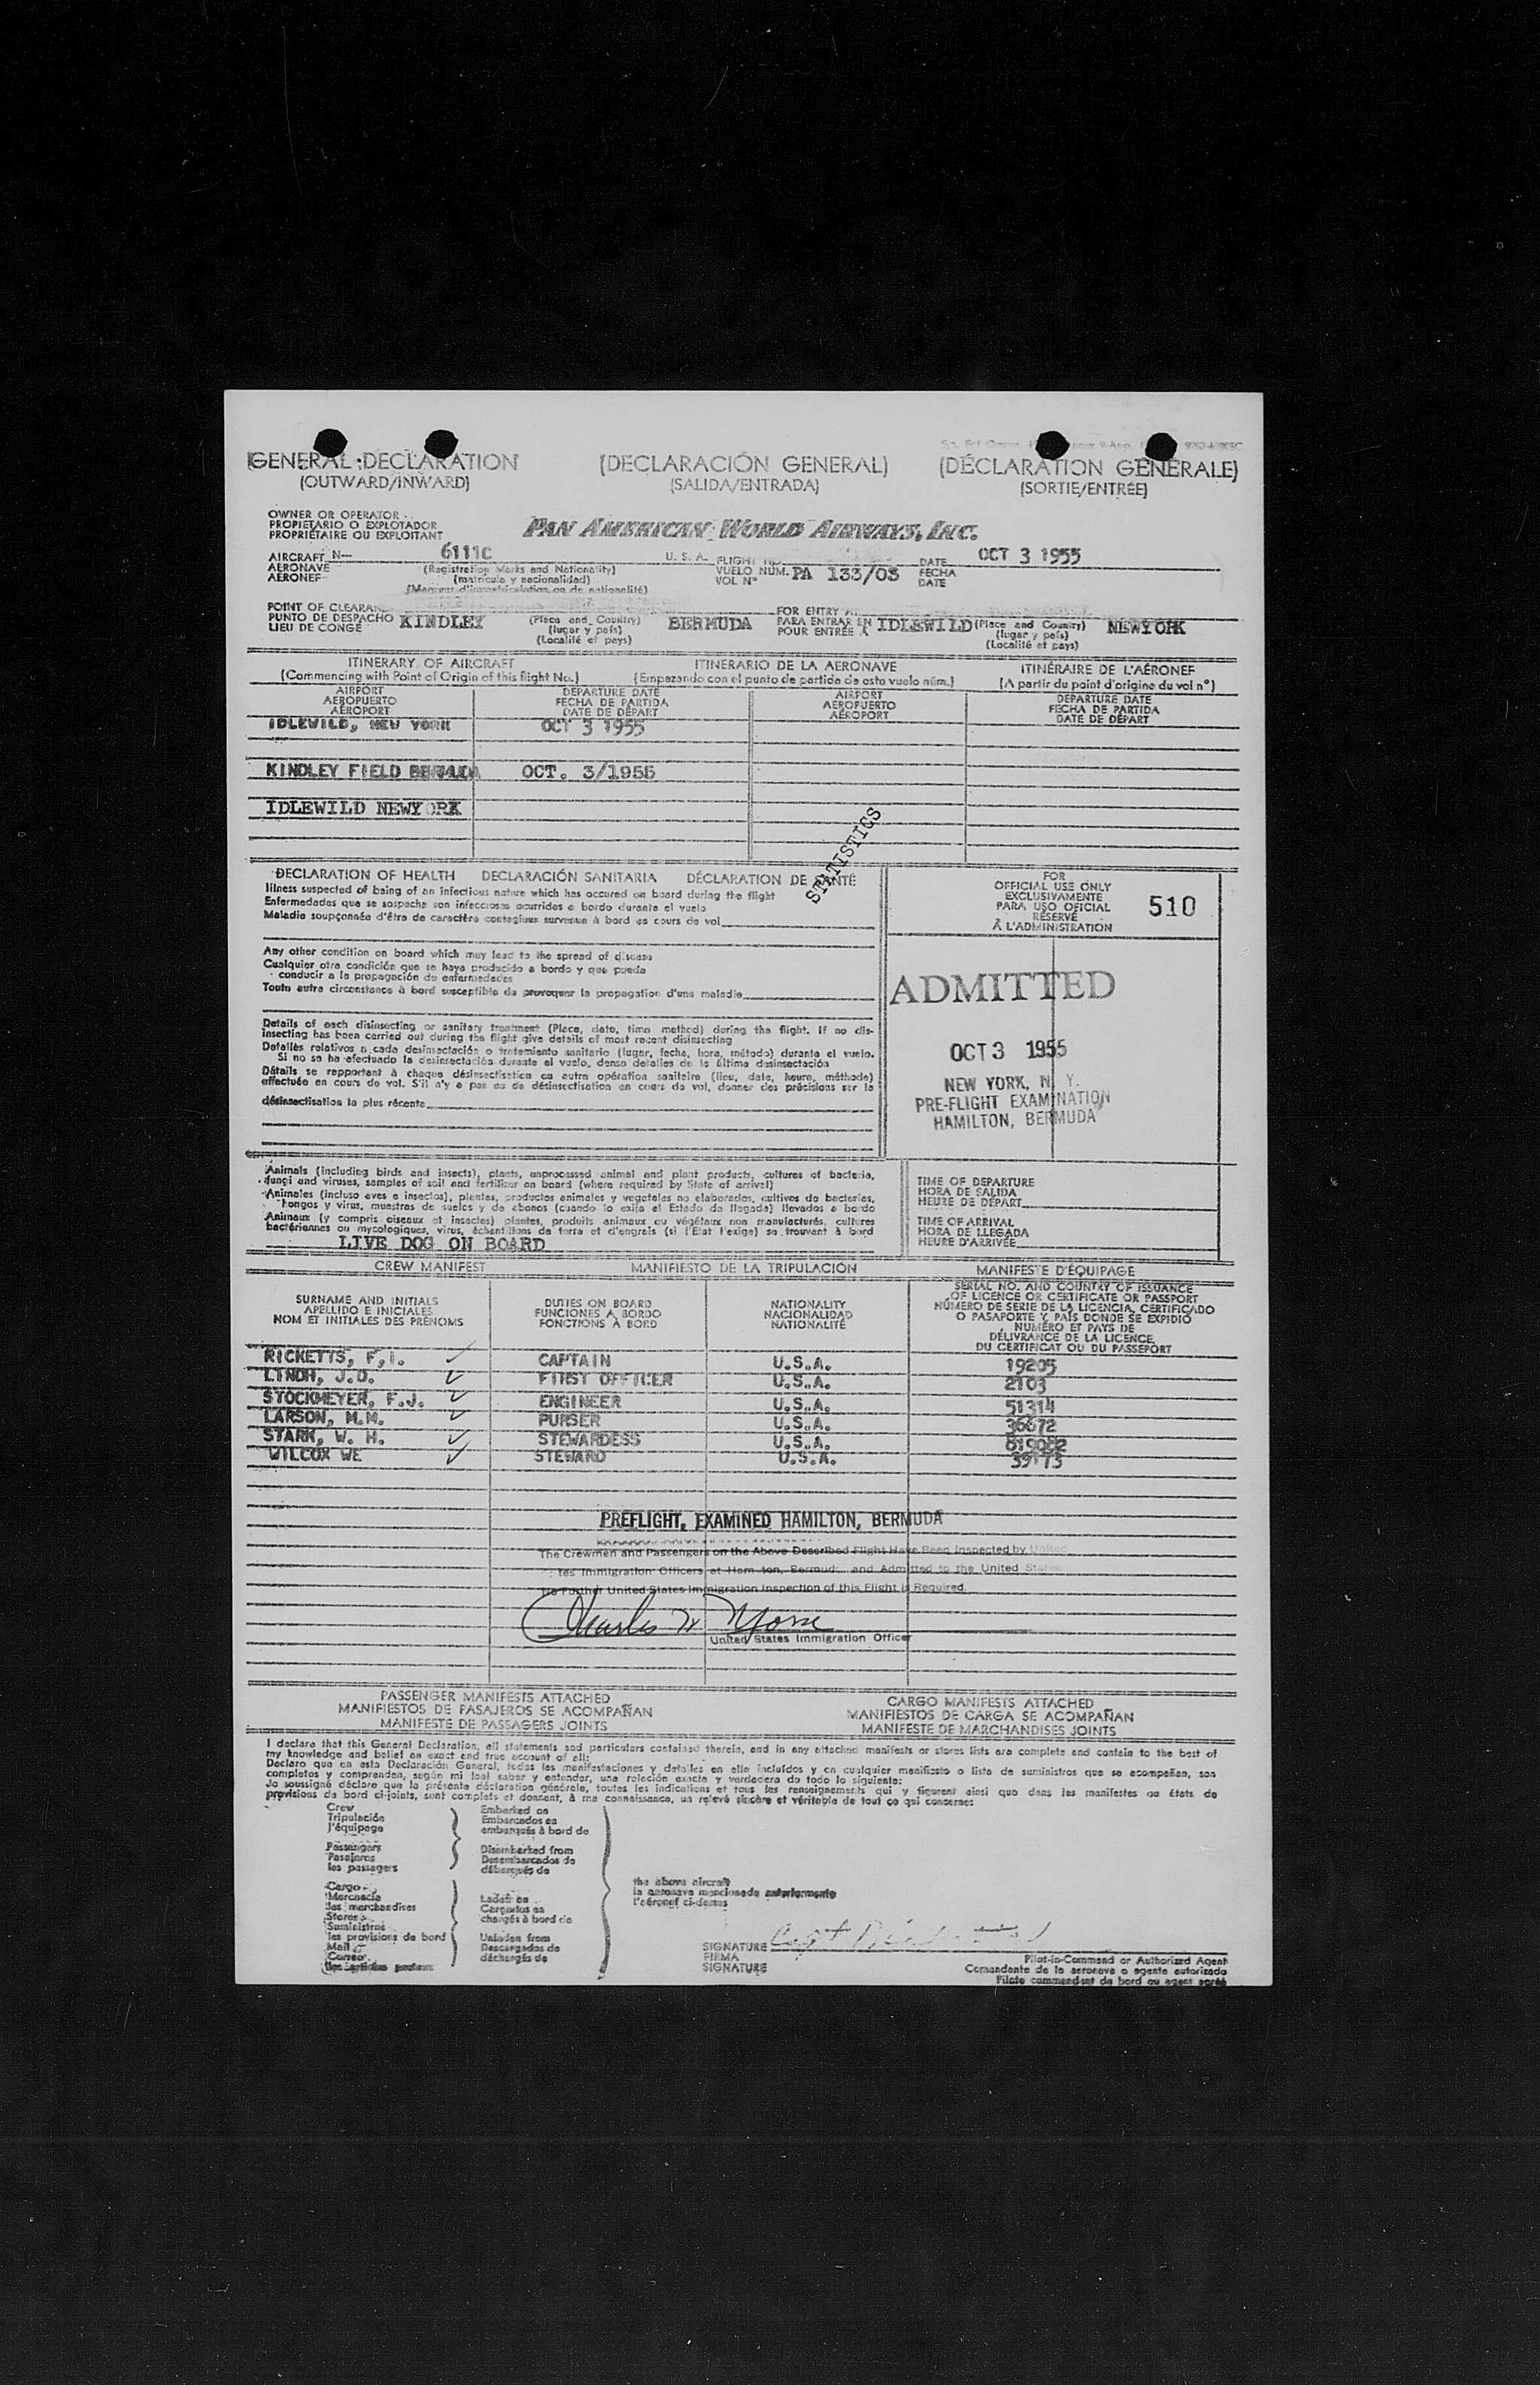 GENERAL DECLARATION (DECLARACIÓN GENERAL) (DÉCLARATION GÉNÉRALE)
(OUTWARD/INWARD) (SALIDA/ENTRADA) (SORTIE/ENTRÉE)
OWNER OR OPERATOR
PROPIETARIO O EXPLOTADOR
PROPRIÉTAIRE OU EXPLOITANT
PAN AMERICAN WORLD AIRWAYS, INC.
AIRCRAFT N— 6111C U. S. A. FLIGHT DATE OCT 3 1955
AERONAVE (Registration Marks and Nationality) VUELO NÚM. PA 133/03 FECHA
AÉRONEF (matrícula y nacionalidad) VOL Nº DATE
POINT OF CLEARANCE FOR ENTRY AT
PUNTO DE DESPACHO KINDLEY (Place and Country) BERMUDA PARA ENTRAR EN IDLEWILD (Place and Country) NEWYORK
LIEU DE CONGÉ (lugar y país) POUR ENTRÉE À (lugar y país)
(Localité et pays) (Localité et pays)
ITINERARY OF AIRCRAFT ITINERARIO DE LA AERONAVE ITINÉRAIRE DE L'AÉRONEF
(Commencing with Point of Origin of this flight No.) (Empezando con el punto de partida de esto vuelo núm.) (A partir du point d'origine du vol nº)
AIRPORT DEPARTURE DATE AIRPORT DEPARTURE DATE
AEROPUERTO FECHA DE PARTIDA AEROPUERTO FECHA DE PARTIDA
AÉROPORT DATE DE DÉPART AÉROPORT DATE DE DÉPART
IDLEWILD, NEW YORK OCT 3 1955
KINDLEY FIELD BERMUDA OCT. 3/1955
IDLEWILD NEWYORK
STATISTICS
DECLARATION OF HEALTH DECLARACIÓN SANITARIA DÉCLARATION DE SANTÉ
Illness suspected of being of an infectious nature which has occured on board during the flight
Enfermedades que se sospecha son infecciosas ocurridas a bordo durante el vuelo
Maladie soupçonnée d'être de caractère contagieux survenue à bord es cours de vol
FOR
OFFICIAL USE ONLY
EXCLUSIVAMENTE
PARA USO OFICIAL
RÉSERVÉ
À L'ADMINISTRATION
510
Any other condition on board which may lead to the spread of disease
Cualquier otra condición que se haya producido a bordo y que pueda
conducir a la propagación de enfermedades
Toute autre circonstance à bord susceptible de provoquer la propagation d'une maladie
ADMITTED
OCT 3 1955
NEW YORK, N. Y.
PRE-FLIGHT EXAMINATION
HAMILTON, BERMUDA
Details of each disinsecting or sanitary treatment (Place, date, time method) during the flight. If no dis-
insecting has been carried out during the flight give details of most recent disinsecting
Detalles relativos a cada desinsectación o tratamiento sanitario (lugar, fecha, hora, método) durante el vuelo.
Si no se ha efectuado la desinsectación durante el vuelo, dense detalles de la última desinsectación
Détails se rapportant à chaque désinsectisation ou autre opération sanitaire (lieu, date, heure, méthode)
effectuée en cours de vol. S'il n'y a pas eu de désinsectisation en cours de vol, donner des précisions sur la
désinsectisation la plus récente
Animals (including birds and insects), plants, unprocessed animal and plant products, cultures of bacteria,
fungi and viruses, samples of soil and fertilizer on board (where required by State of arrival)
Animales (incluso aves e insectos), plantas, productos animales y vegetales no elaborados, cultivos de bacterias,
hongos y virus, muestras de suelos y de abonos (cuando lo exija el Estado de llegada) llevados a bordo
Animaux (y compris oiseaux et insectes) plantes, produits animaux ou végétaux non manufacturés, cultures
bactériennes ou mycologiques, virus, échantillons de terre et d'engrais (si l'État l'exige) se trouvant à bord
LIVE DOG ON BOARD
TIME OF DEPARTURE
HORA DE SALIDA
HEURE DE DÉPART
TIME OF ARRIVAL
HORA DE LLEGADA
HEURE D'ARRIVÉE
CREW MANIFEST MANIFIESTO DE LA TRIPULACIÓN MANIFESTE D'ÉQUIPAGE
SURNAME AND INITIALS
APELLIDO E INICIALES
NOM ET INITIALES DES PRÉNOMS
DUTIES ON BOARD
FUNCIONES A BORDO
FONCTIONS À BORD
NATIONALITY
NACIONALIDAD
NATIONALITÉ
SERIAL NO. AND COUNTRY OF ISSUANCE
OF LICENCE OR CERTIFICATE OR PASSPORT
NÚMERO DE SERIE DE LA LICENCIA, CERTIFICADO
O PASAPORTE Y PAÍS DONDE SE EXPIDIÓ
NUMÉRO ET PAYS DE
DÉLIVRANCE DE LA LICENCE
DU CERTIFICAT OU DU PASSEPORT
RICKETTS, F.I. CAPTAIN U.S.A. 19205
J.D. FIRST OFFICER U.S.A. 2103
STOCKMEYER, F.J. ENGINEER U.S.A. 51314
LARSON, M.M. PURSER U.S.A. 36672
STARK, W. H. STEWARDESS U.S.A. 819082
WILCOX WE STEWARD U.S.A. 39173
PREFLIGHT, EXAMINED HAMILTON, BERMUDA
The Crewmen and Passengers on the Above Described Flight Have Been Inspected by United
tes Immigration Officers at Ham ton, Bermud and Admitted to the United States
No Further United States Immigration Inspection of this Flight is Required.
Charles W Morse
United States Immigration Officer
PASSENGER MANIFESTS ATTACHED CARGO MANIFESTS ATTACHED
MANIFIESTOS DE PASAJEROS SE ACOMPAÑAN MANIFIESTOS DE CARGA SE ACOMPAÑAN
MANIFESTE DE PASSAGERS JOINTS MANIFESTE DE MARCHANDISES JOINTS
I declare that this General Declaration, all statements and particulars contained therein, and in any attached manifests or stores lists are complete and contain to the best of
my knowledge and belief an exact and true account of all:
Declaro que en esta Declaración General, todas las manifestaciones y detalles en ella incluídos y en cualquier manifiesto o lista de suministros que se acompañan, son
completos y comprenden, según mi leal saber y entender, una relación exacta y verdadera de todo lo siguiente:
Je soussigné déclare que la présente déclaration générale, toutes les indications et tous les renseignements qui y figurent ainsi que dans les manifestes ou états de
provisions de bord ci-joints, sont complets et donnent, à ma connaissance, un relevé sincère et véritable de tout ce qui concerne:
Crew
Tripulación
l'équipage
Passengers
Pasajeros
les passagers
Embarked on
Embarcados en
embarqués à bord de
Disembarked from
Desembarcados de
débarqués de
Cargo
Mercancía
les marchandises
Stores
Suministros
les provisions de bord
Mail
Correo
Laden on
Cargados en
chargés à bord de
Unladen from
Descargados de
déchargés de
the above aircraft
la aeronave mencionada anteriormente
l'aéronef ci-dessus
SIGNATURE Capt
FIRMA
SIGNATURE
Pilot-in-Command or Authorized Agent
Comandante de la aeronave o agente autorizado
Pilote commandant de bord ou agent agréé